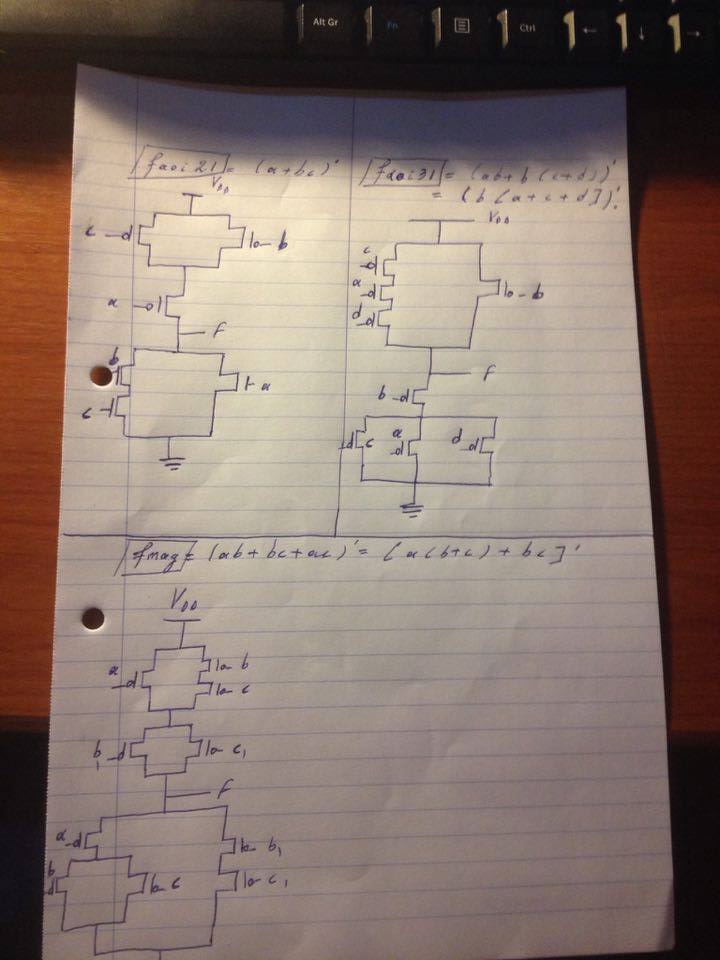 Alt Gr
Fn
Ctrl
faoi21 = (a+bc)'
VDD
c
b
a
F
b
a
c
faoi31 = (ab+b(c+d))'
= (b(a+c+d])'
VDD
c
a
d
b
F
b
c
a
d
fmaj = (ab+bc+ac)' = [a(b+c)+bc]'
VDD
a
b
c
b1
c1
F
a
b1
b
c
c1